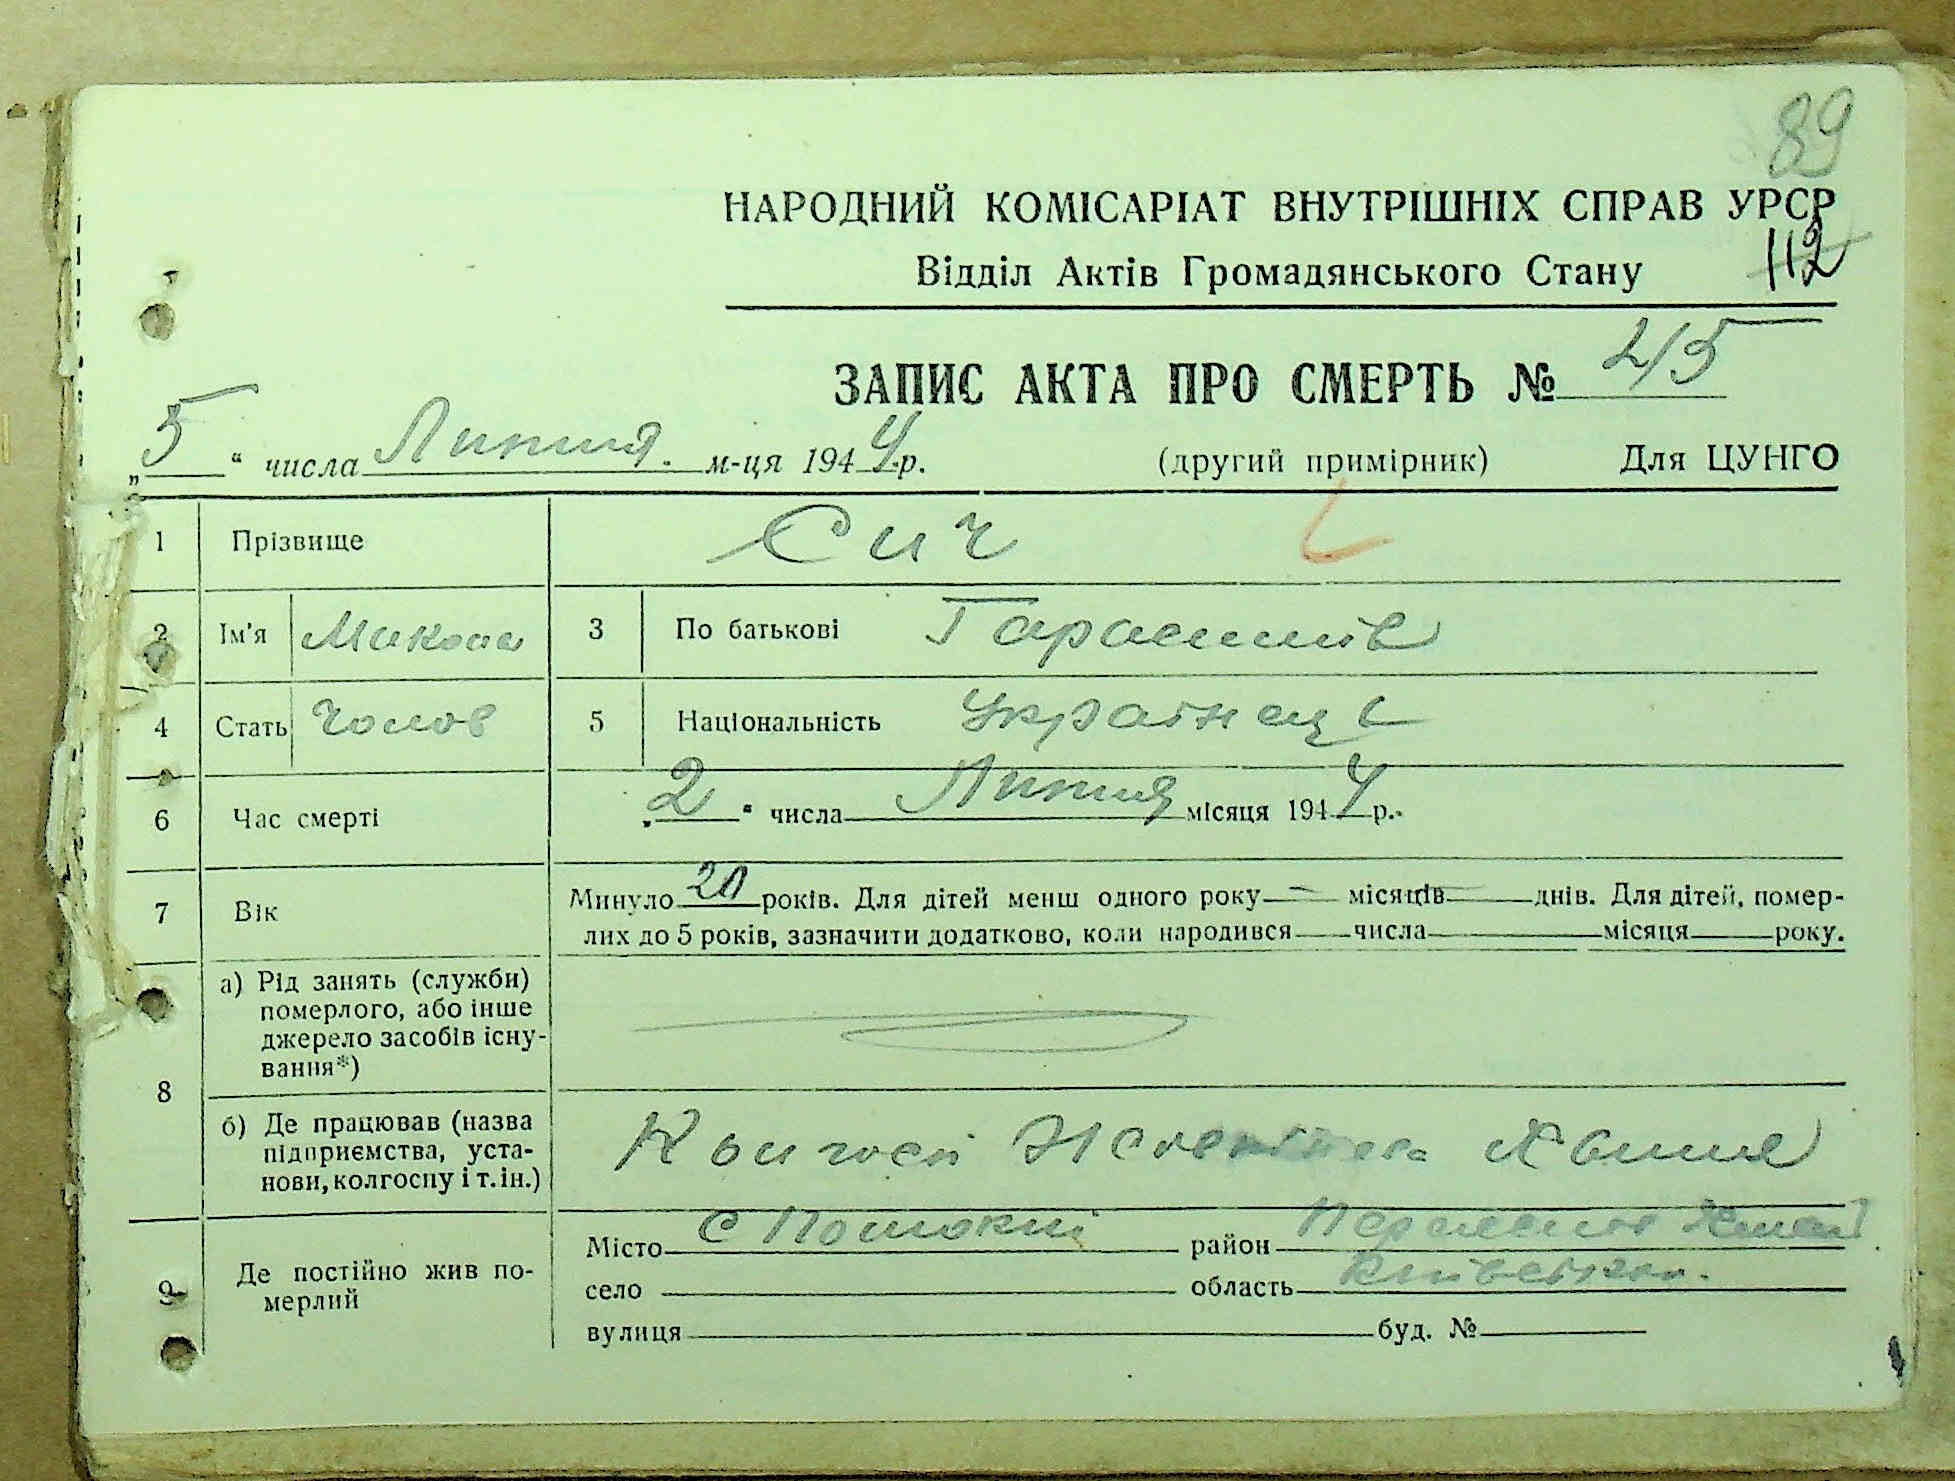 89
НАРОДНИЙ КОМІСАРІАТ ВНУТРІШНІХ СПРАВ УРСР
112
Відділ Актів Громадянського Стану
ЗАПИС АКТА ПРО СМЕРТЬ №
„5“ числа Липня м-ця 1944 р. (другий примірник) Для ЦУНГО
1 Прізвище Сич
2 Ім'я Микола 3 По батькові Гарасимів
4 Стать Чолов 5 Національність Українец
6 Час смерті „2“ числа Липня місяця 1944 р.
7 Вік Минуло 20 років. Для дітей менш одного року — місяців — днів. Для дітей, помер-
лих до 5 років, зазначити додатково, коли народився — числа — місяця — року.
8 а) Рід занять (служби)
померлого, або інше
джерело засобів існу-
вання*)
б) Де працював (назва
підприємства, уста-
нови, колгоспу і т. ін.)
9 Де постійно жив по-
мерлий
Місто с район
село область
вулиця буд. №